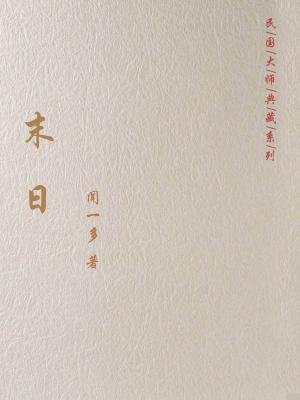 民|国|大|师|典|藏|系|列
末日
闻一多 著